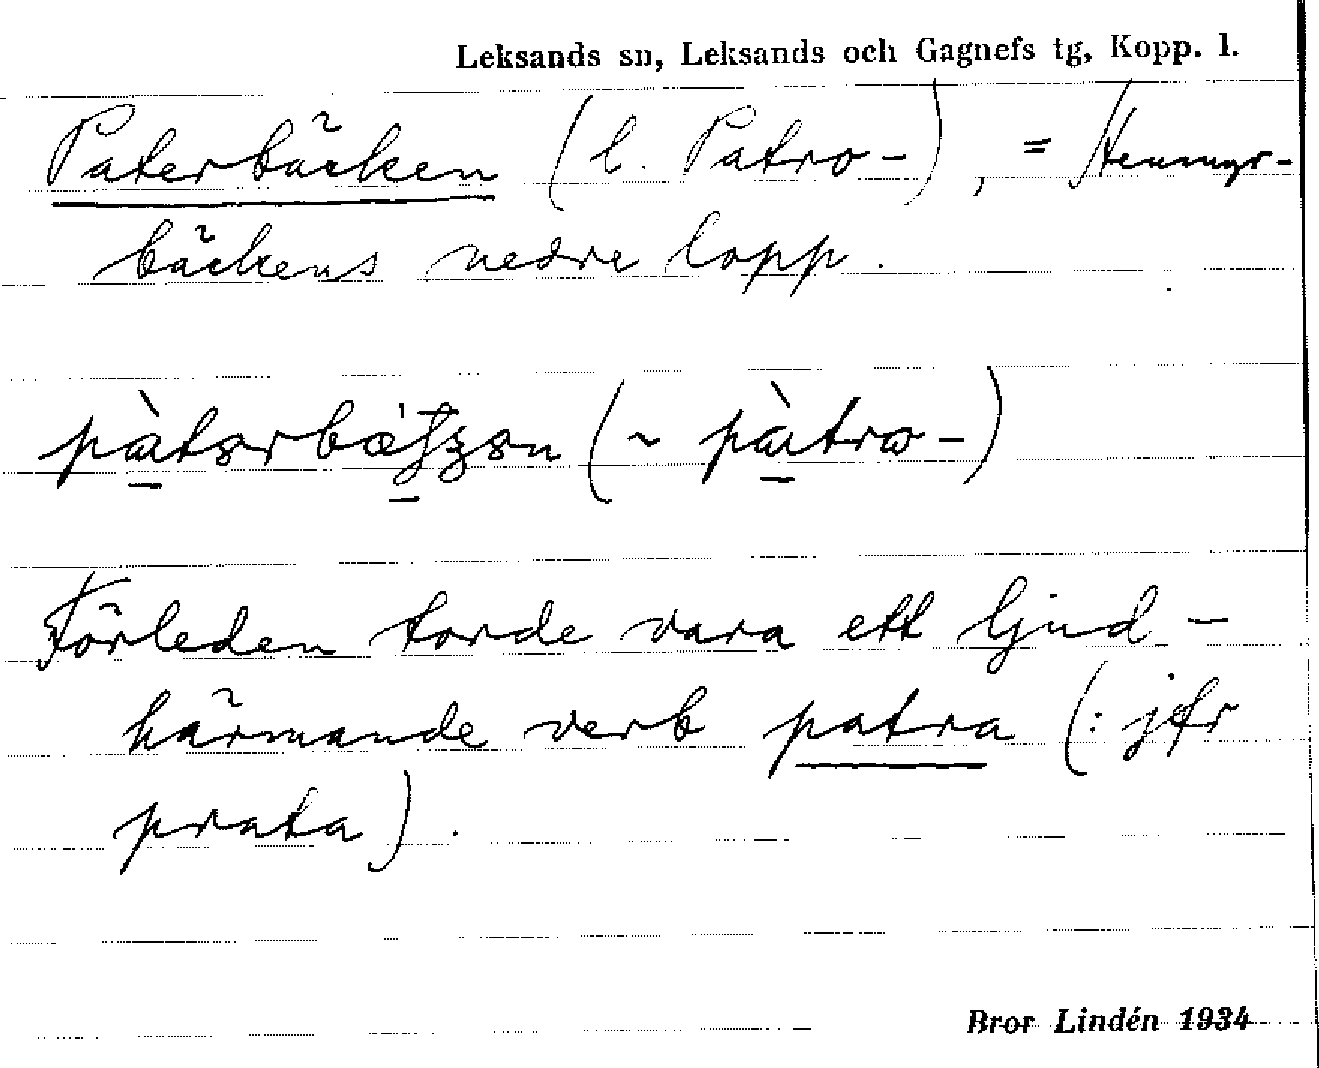 Leksands sn, Leksands och Gagnefs tg, Kopp. l.
Paterbäcken (l. Patro-), = Hennings-
bäckens nedre lopp.
Förleden torde vara ett ljud-
härmande verb patra (: jfr
prata).
Bror Lindén 1934